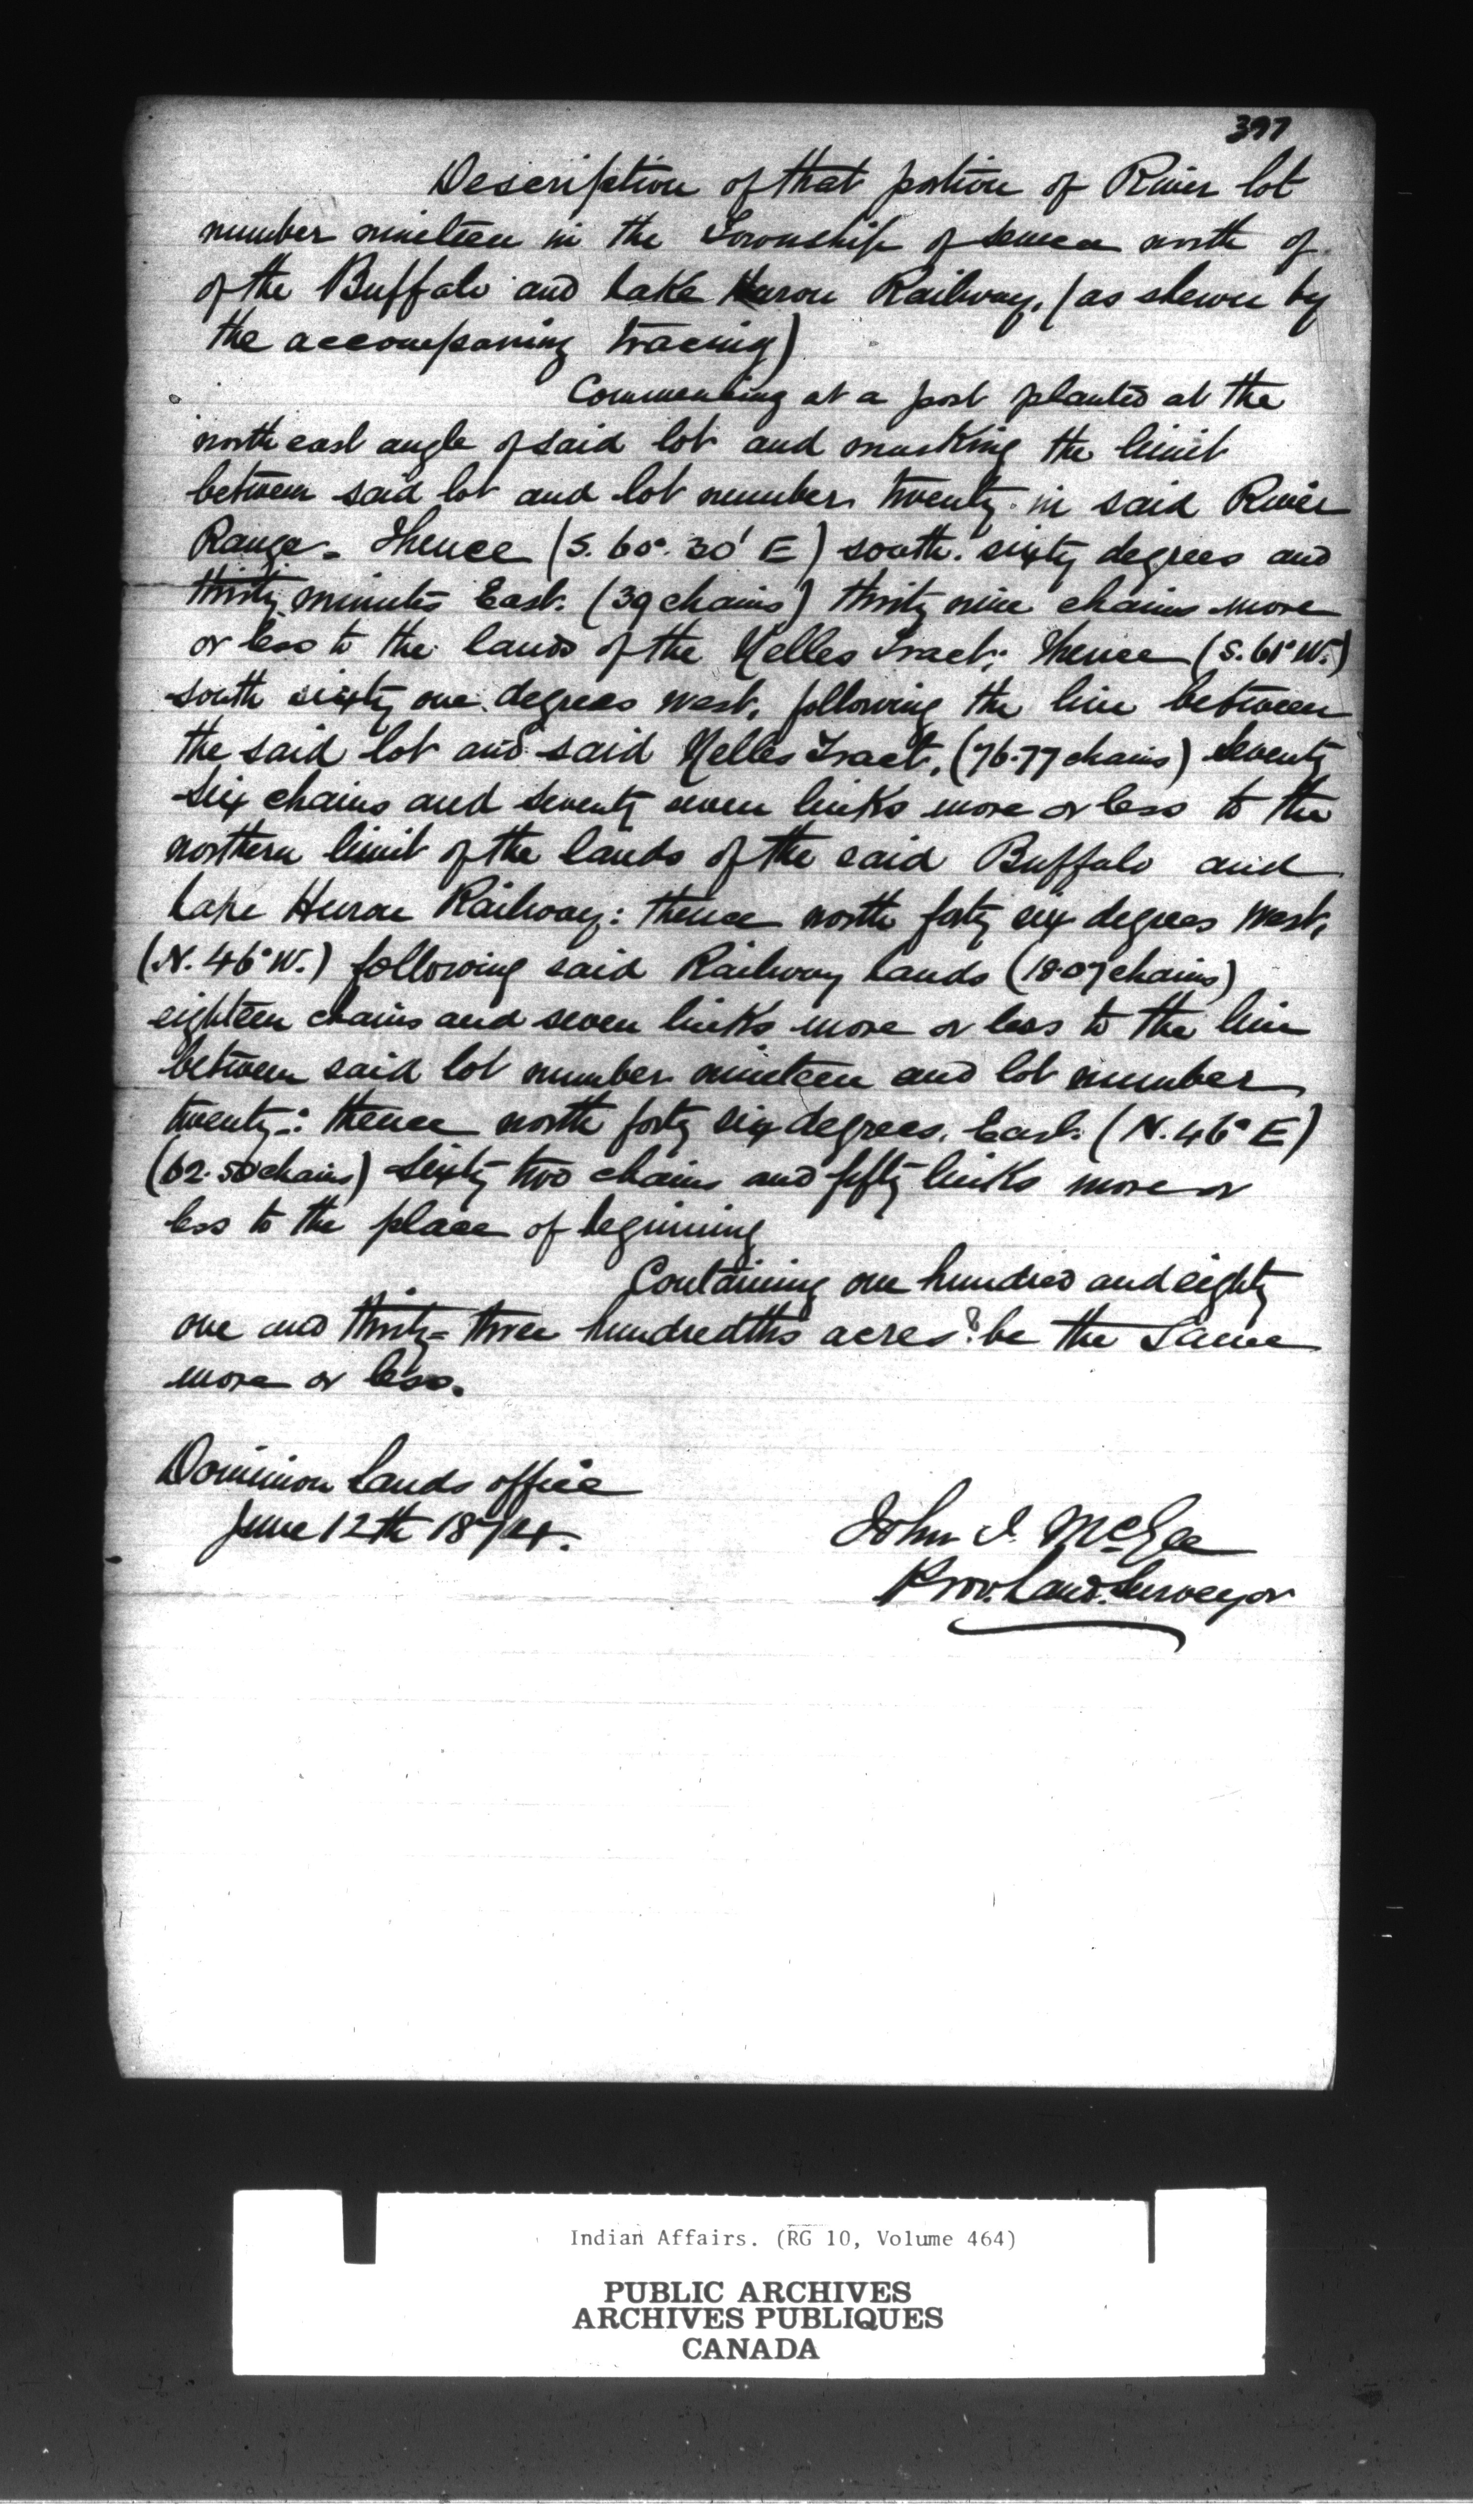 397
Description of that portion of River lot
number nineteen in the Township of Seneca north of
of the Buffalo and Lake Huron Railway, (as shewn by
the accompaning tracing)
Commencing at a post planted at the
north east angle of said lot and marking the limit
between said lot and lot number twenty in said River
Range - Thence (S. 60°. 30' E) south sixty degrees and
thirty minutes East. (39 chains) thirty nine chains more
or less to the lands of the Nelles Tract; Thence (S. 61° W.)
south sixty one degrees west, following the line between
the said lot and said Nelles Tract, (76.77 chains) Seventy
six chains and seventy seven links more or less to the
northern limit of the lands of the said Buffalo and
Lake Huron Railway: thence north forty six degrees West,
(N. 46° W.) following said Railway Lands (18.07 chains)
eighteen chains and seven links more or less to the line
between said lot number nineteen and lot number
twenty: thence north forty six degrees. East. (N. 46° E)
(62.50 chains) Sixty two chains and fifty links more or
less to the place of beginning
Containing one hundred and eighty
one and thirty-three hundredths acres be the same
more or less.
Dominion Lands office
June 12th 1874.
John I. McGee
Prov. Land. Surveyor
Indian Affairs. (RG 10, Volume 464)
PUBLIC ARCHIVES
ARCHIVES PUBLIQUES
CANADA